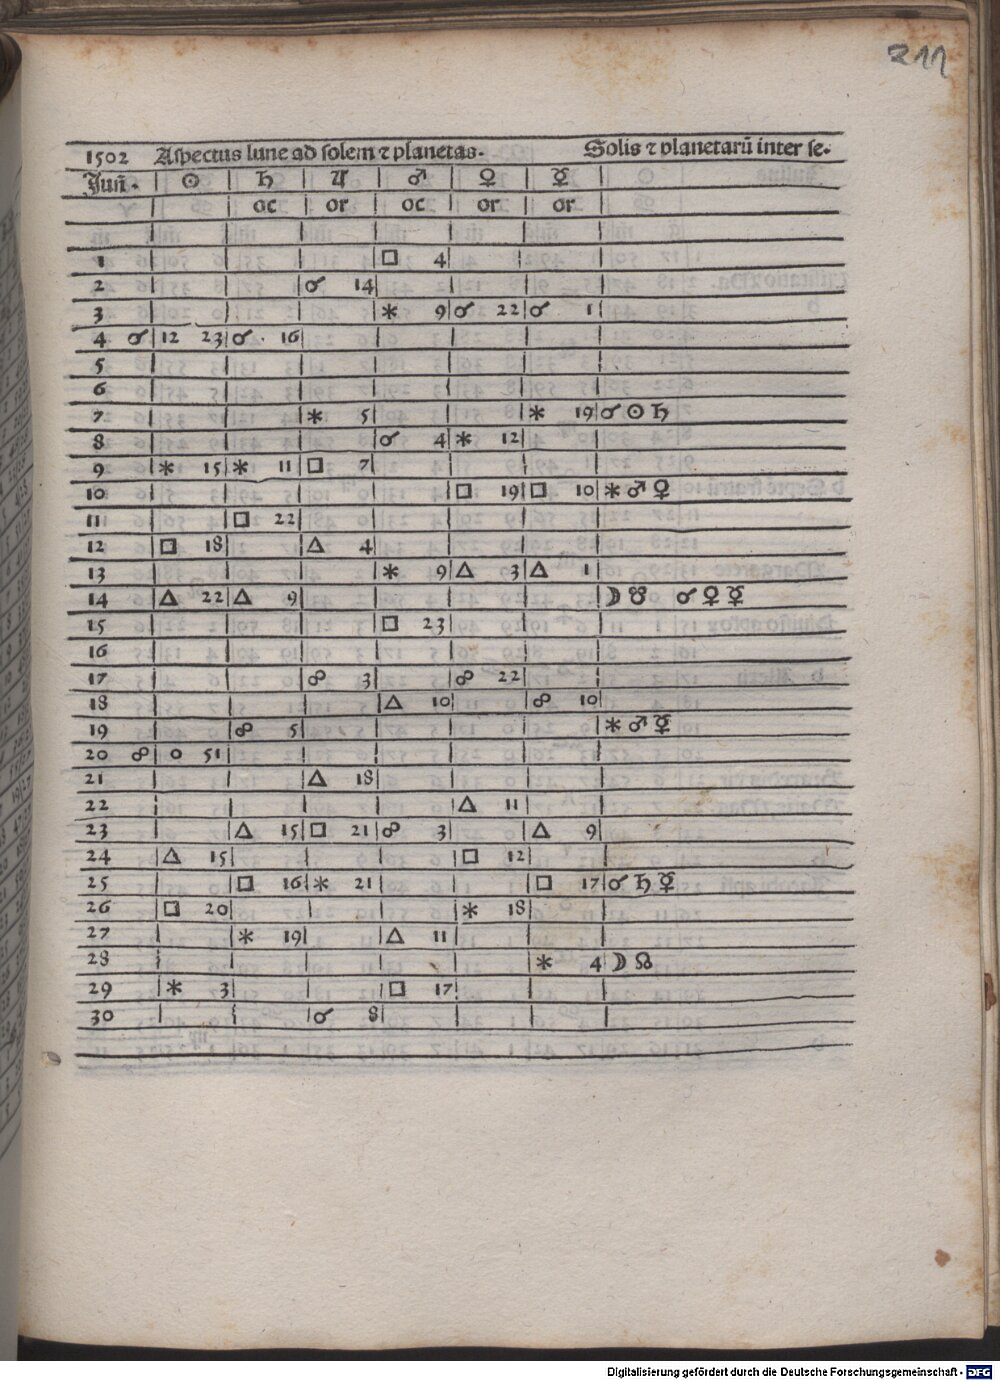 211
1502 Aspectus lune ad solem ⁊ planetas. Solis ⁊ planetarū inter se.
Juñ. ☉ ♄ ♃ ♂ ♀ ☿
oc or oc or or
1 □ 4
2 ☌ 14
3 ⚹ 9 ☌ 22 ☌ 1
4 ☌ 12 23 ☌ 16
5
6
7 ⚹ 5 ⚹ 19 ☌ ☉ ♄
8 ☌ 4 ⚹ 12
9 ⚹ 15 ⚹ 11 □ 7
10 □ 19 □ 10 ⚹ ♂ ♀
11 □ 22
12 □ 18 △ 4
13 ⚹ 9 △ 3 △ 1
14 △ 22 △ 9 ☽ ☋ ☌ ♀ ☿
15 □ 23
16
17 ☍ 3 ☍ 22
18 △ 10 ☍ 10
19 ☍ 5 ⚹ ♂ ☿
20 ☍ 0 51
21 △ 18
22 △ 11
23 △ 15 □ 21 ☍ 3 △ 9
24 △ 15 □ 12
25 □ 16 ⚹ 21 □ 17 ☌ ♄ ☿
26 □ 20 ⚹ 18
27 ⚹ 19 △ 11
28 ⚹ 4 ☽ ☊
29 ⚹ 3 □ 17
30 ☌ 8
Digitalisierung gefördert durch die Deutsche Forschungsgemeinschaft - DFG